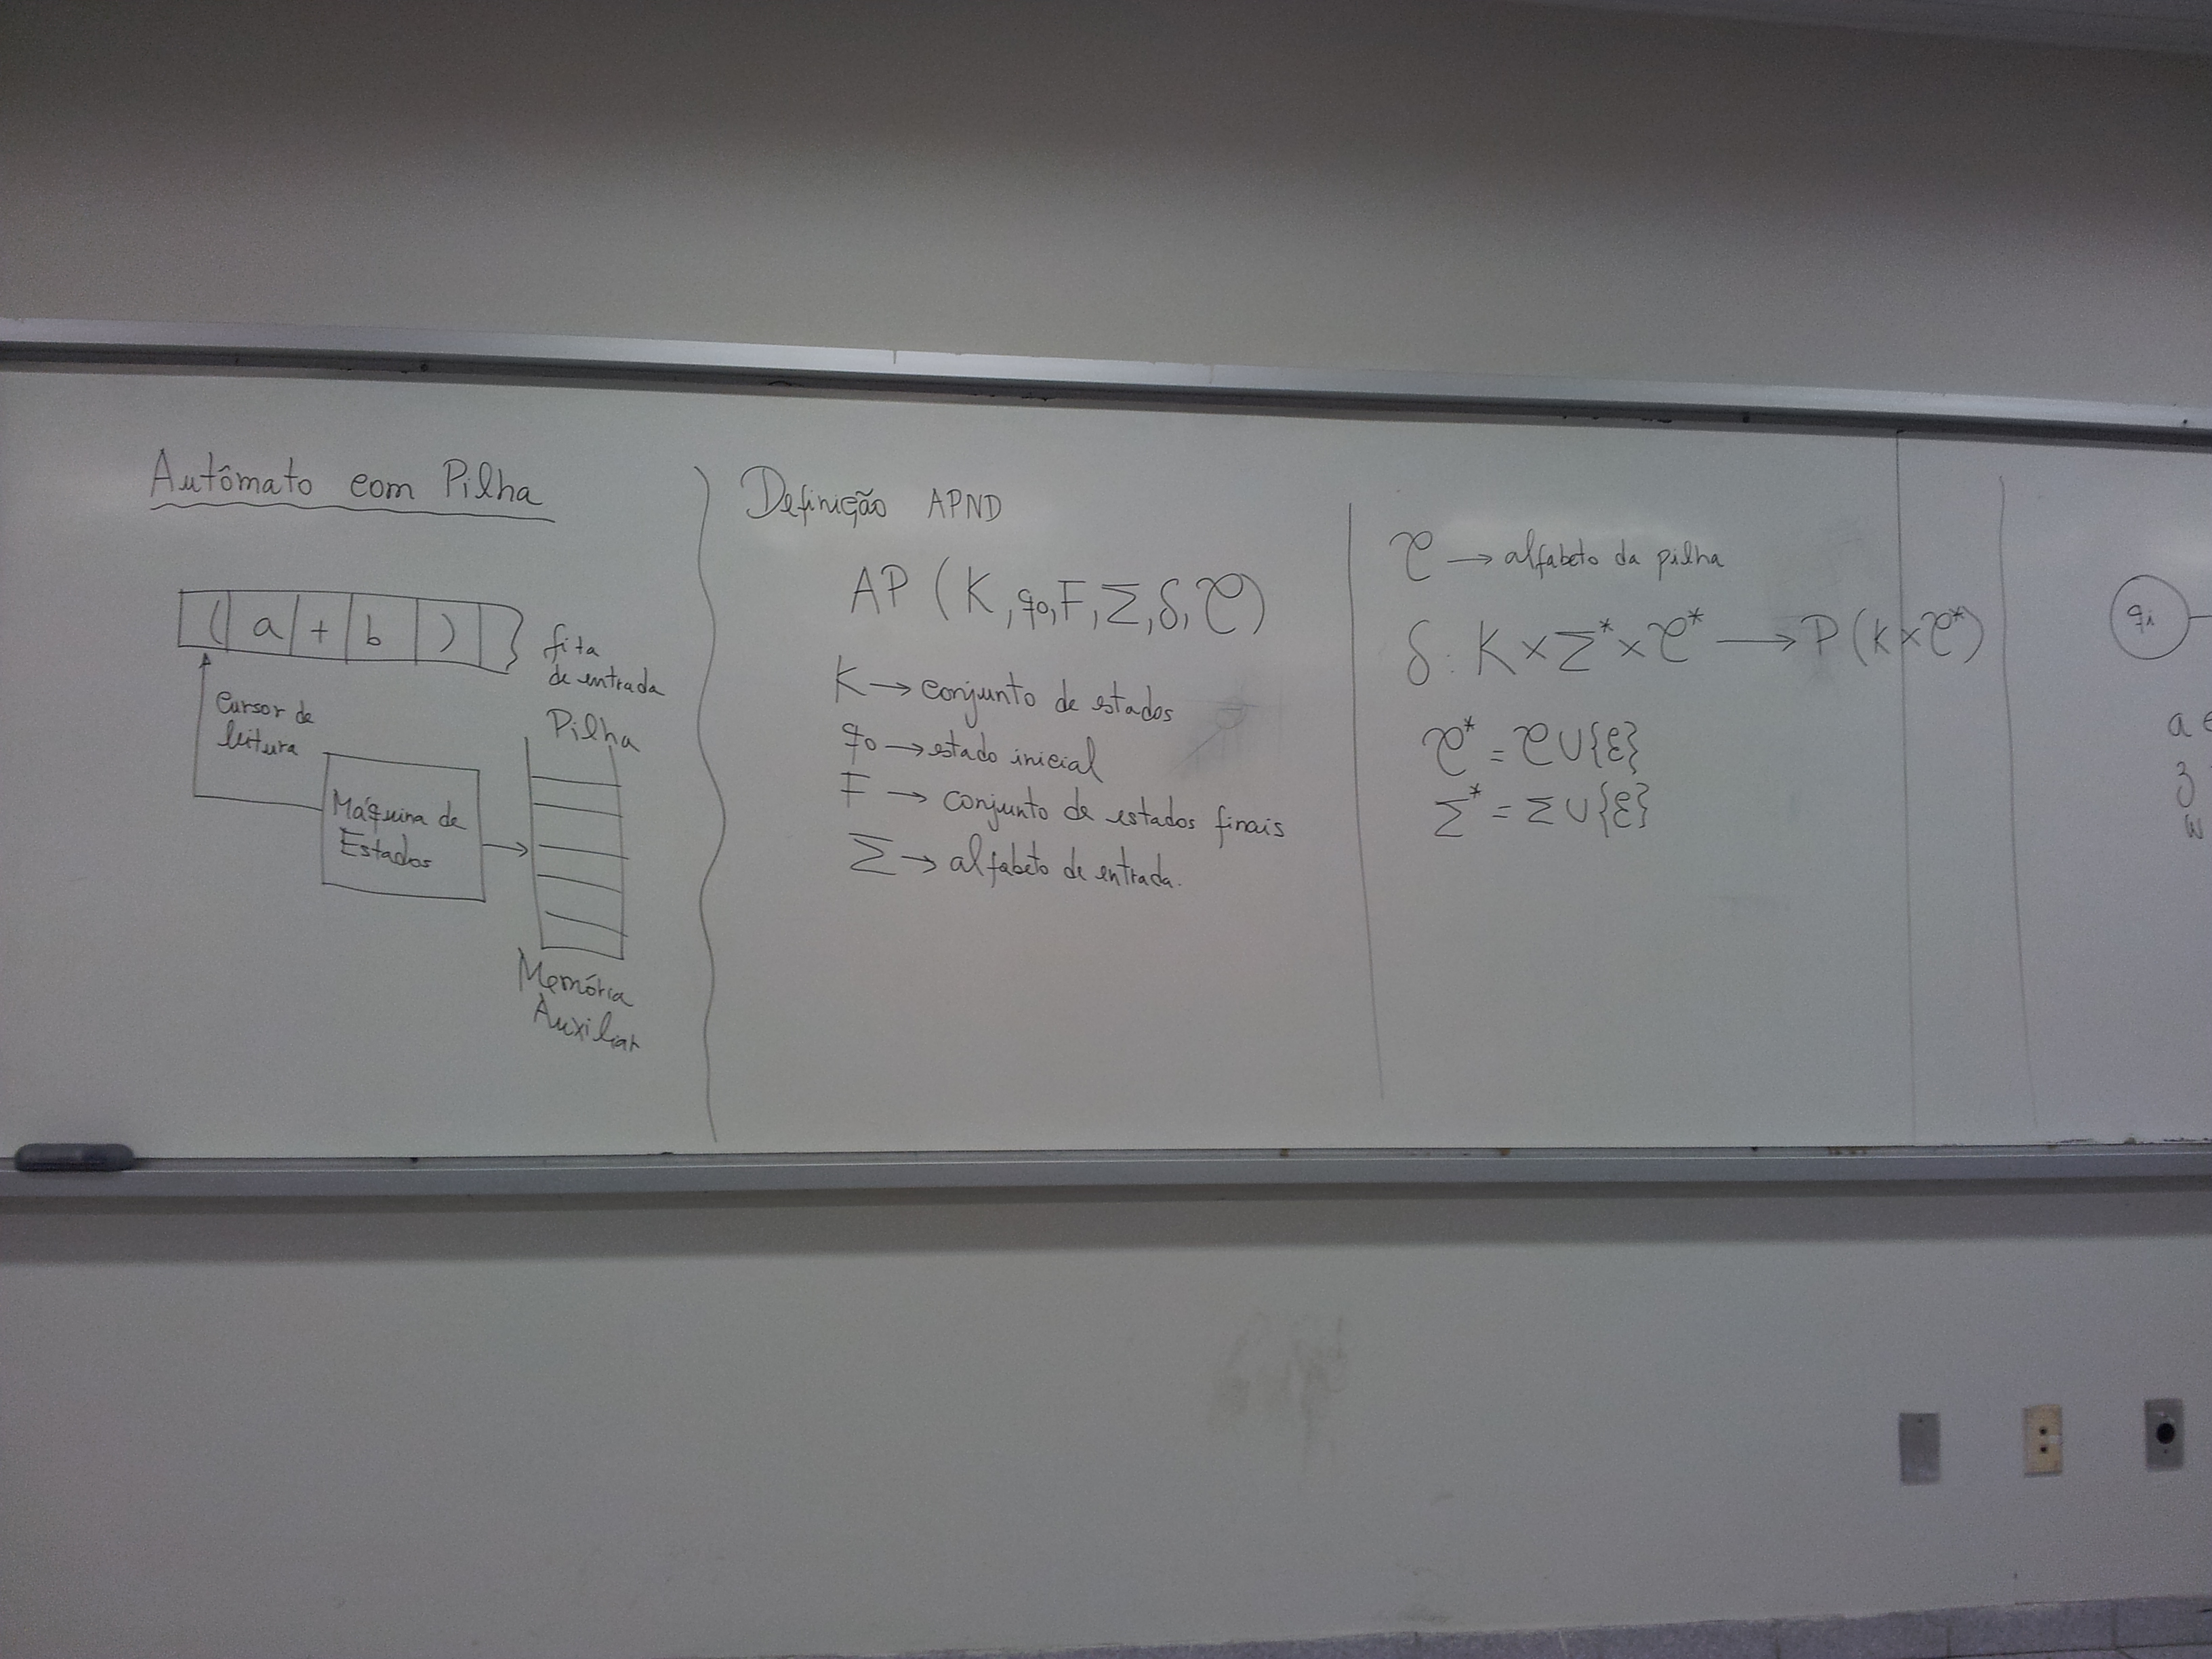 Autômato com Pilha
( a + b )
fita
de entrada
Cursor de
leitura
Pilha
Máquina de
Estados
Memória
Auxiliar
Definição APND
AP (K, q0, F, Σ, δ, τ)
K → conjunto de estados
q0 → estado inicial
F → conjunto de estados finais
Σ → alfabeto de entrada.
τ → alfabeto da pilha
δ: K × Σ* × τ* → P(K × τ*)
τ* = τ ∪ {ε}
Σ* = Σ ∪ {ε}
qi
a